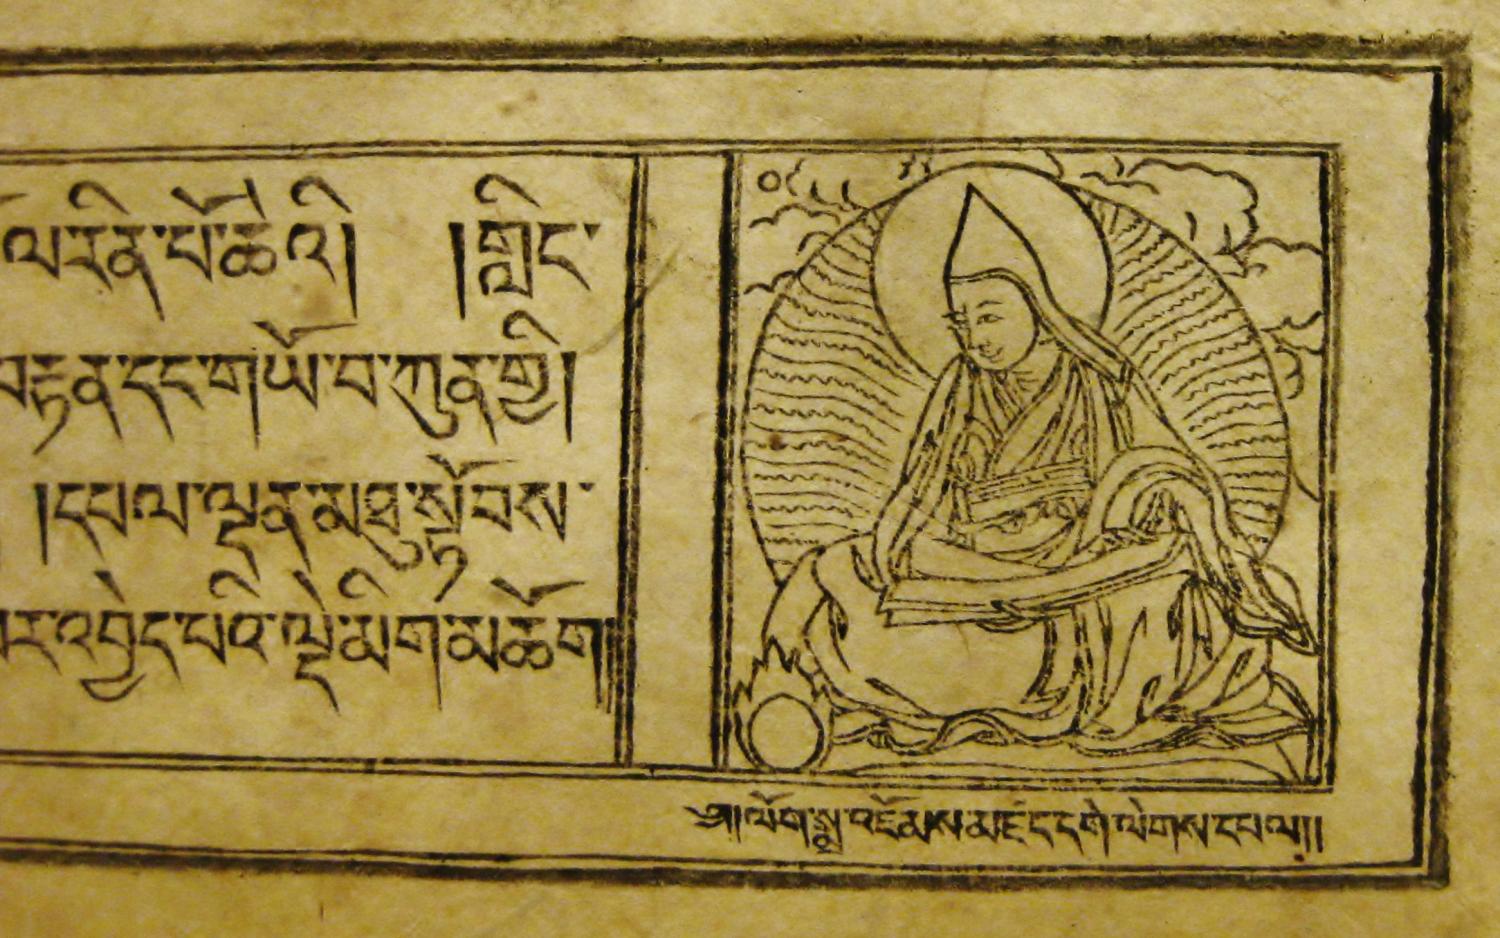 ལ་རིན་པོ་ཆེའི། །གླིང་
བརྟན་དང་གཡོ་བ་ཀུན་གྱི།
།དཔལ་ལྡན་མཐུ་སྟོབས་
པར་འབྱེད་པའི་ལྡེ་མིག་མཆོག།
༄། །ལོག་སྨྲ་འཇོམས་མཛད་དགེ་ལེགས་དཔལ།།